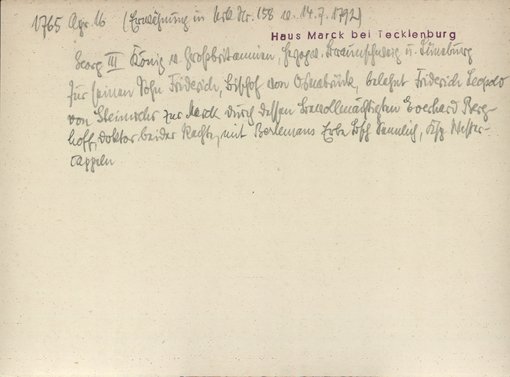 1765 Apr. 16 (Erwähnung in Urk. Nr. 158 v. 14.7.1792)
Haus Marck bei Tecklenburg
Georg III König v. Großbritannien, Herzog v. Braunschweig u. Lüneburg
für seinen Sohn Friderich, Bischof von Osnabrück, belehnt Friderich Leopold
von Steinwehr zur Marck durch dessen Bevollmächtigten Everhard Berg-
hoff, Doktor beider Rechte, mit Berlemans Erbe, Ksp. Wester-
cappeln